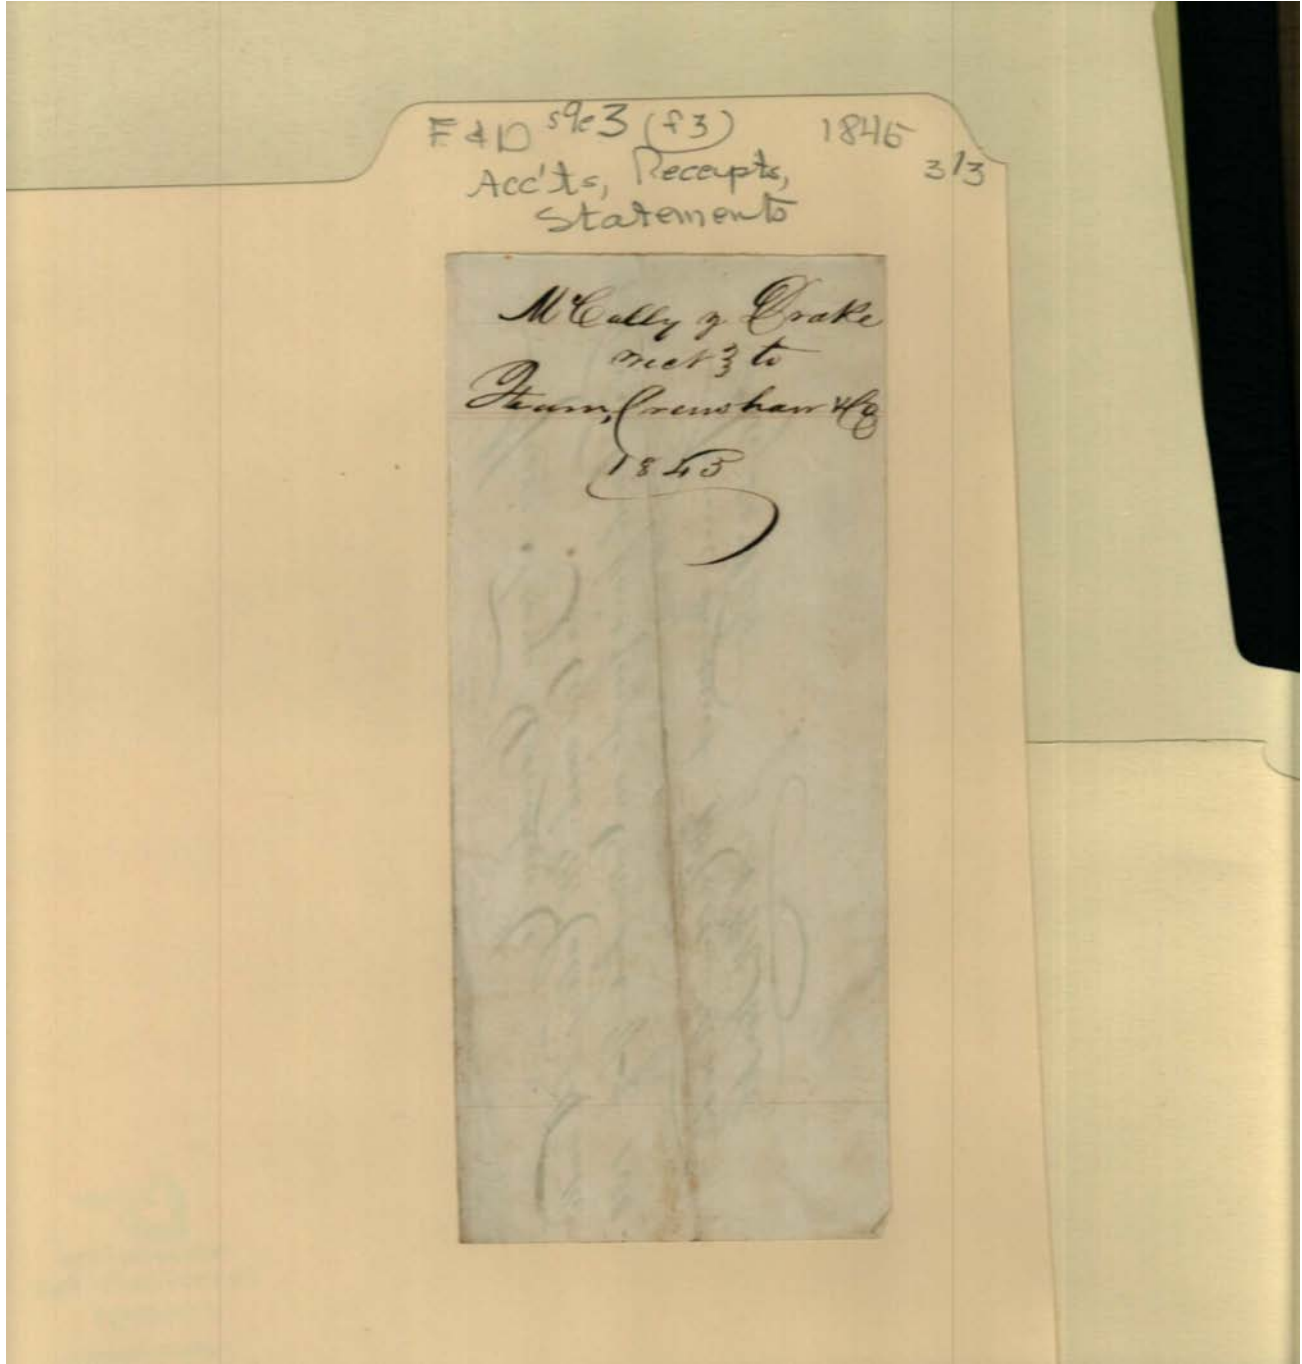 F & D s9e3 (f3) 1845
3/3
Acc'ts, Receipts,
Statements
McCally & Drake
rect to
Fearn, Crenshaw & Co
1845